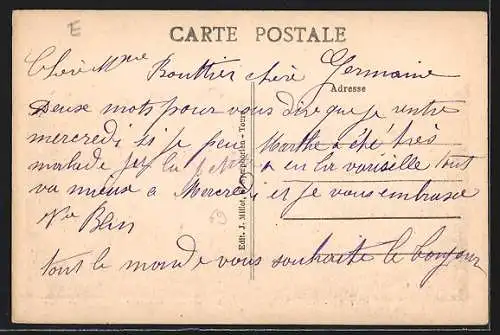 E
CARTE POSTALE
Chère Mme Bouttier chère Germaine
Adresse
Deux mots pour vous dire que je rentre
mercredi si je peu Marthe a été très
malade la petite a eu la variselle tout
va mieux a Mercredi et je vous embrasse
Edit. J. Millot, - Tours
Vve
tout le monde vous souhaite le bonjour